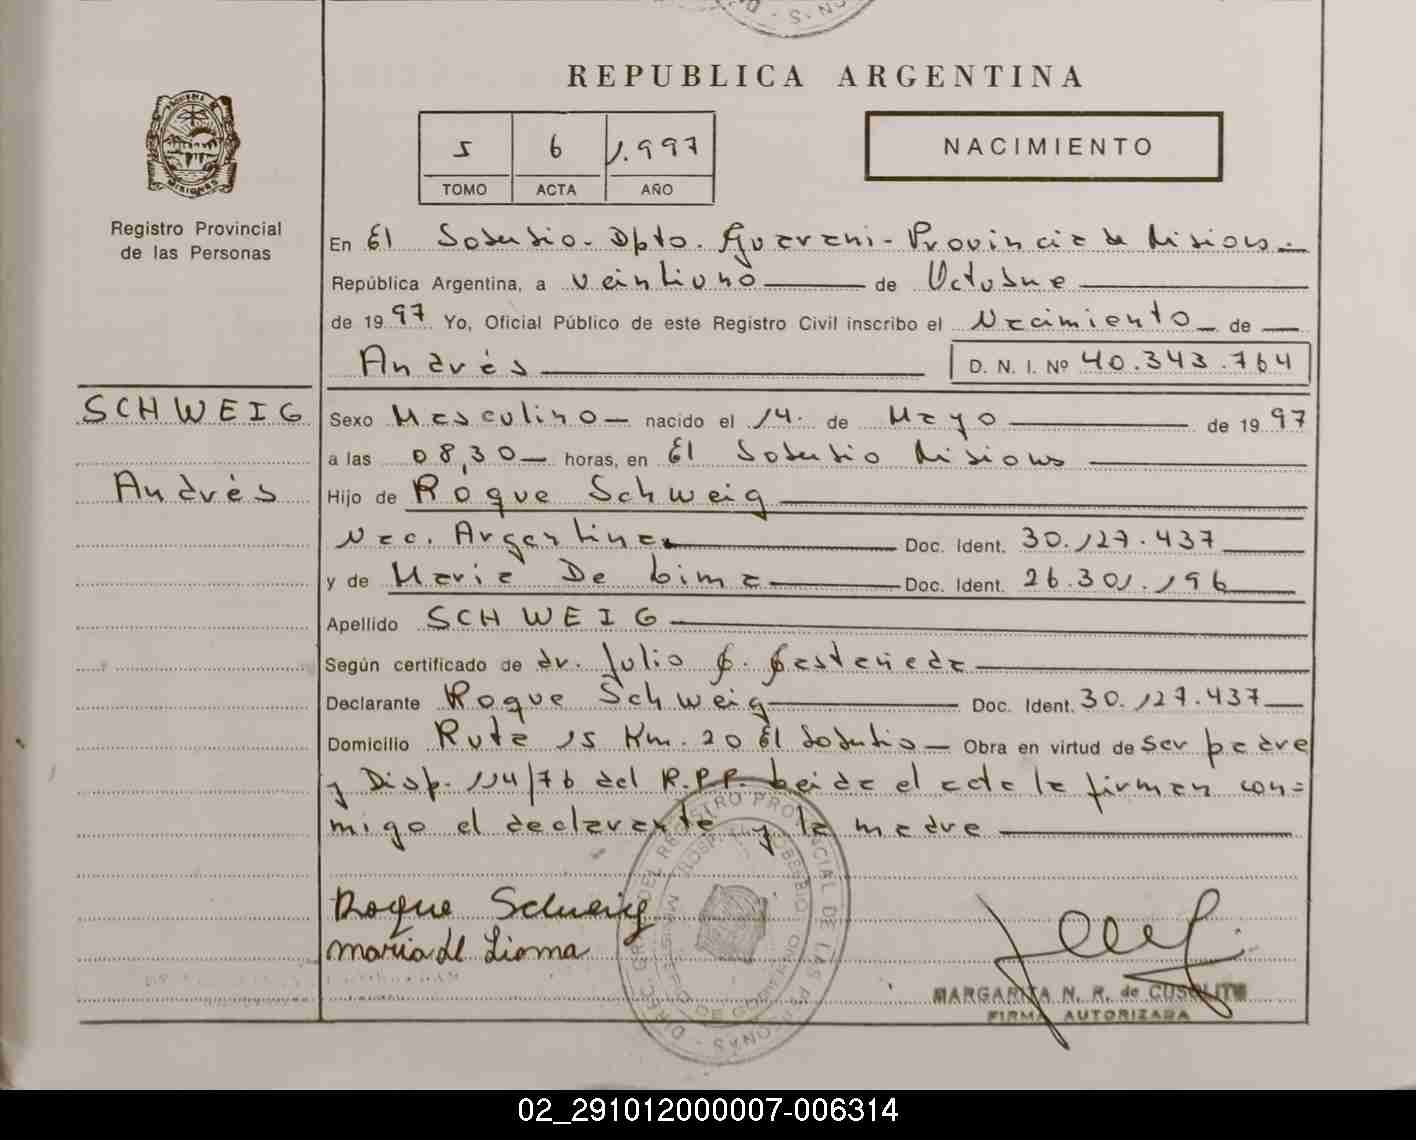 REPUBLICA ARGENTINA
5 6 1.997
TOMO ACTA AÑO
NACIMIENTO
Registro Provincial
de las Personas
En El Soberbio - Dpto. Guarani - Provincia de Misiones
República Argentina, a veintiuno de Octubre
de 1997 Yo, Oficial Público de este Registro Civil inscribo el Nacimiento de
Andrés D. N. I. Nº 40.343.764
SCHWEIG
Andrés
Sexo Masculino nacido el 14. de Mayo de 1997
a las 08,30 horas, en El Soberbio Misiones
Hijo de Roque Schweig
Nac. Argentina Doc. Ident. 30.127.437
y de Maria De Lima Doc. Ident. 26.301.196
Apellido SCHWEIG
Según certificado de dr. Julio C. Castañeda
Declarante Roque Schweig Doc. Ident. 30.127.437
Domicilio Ruta 15 Km. 20 El Soberbio Obra en virtud de ser padre
y Disp. 114/76 del R.P.P. Leida el acta la firman con=
migo el declarante y la madre
Roque Schweig
maria de Lioma
MARGARITA N. R. de
FIRMA AUTORIZADA
02_291012000007-006314